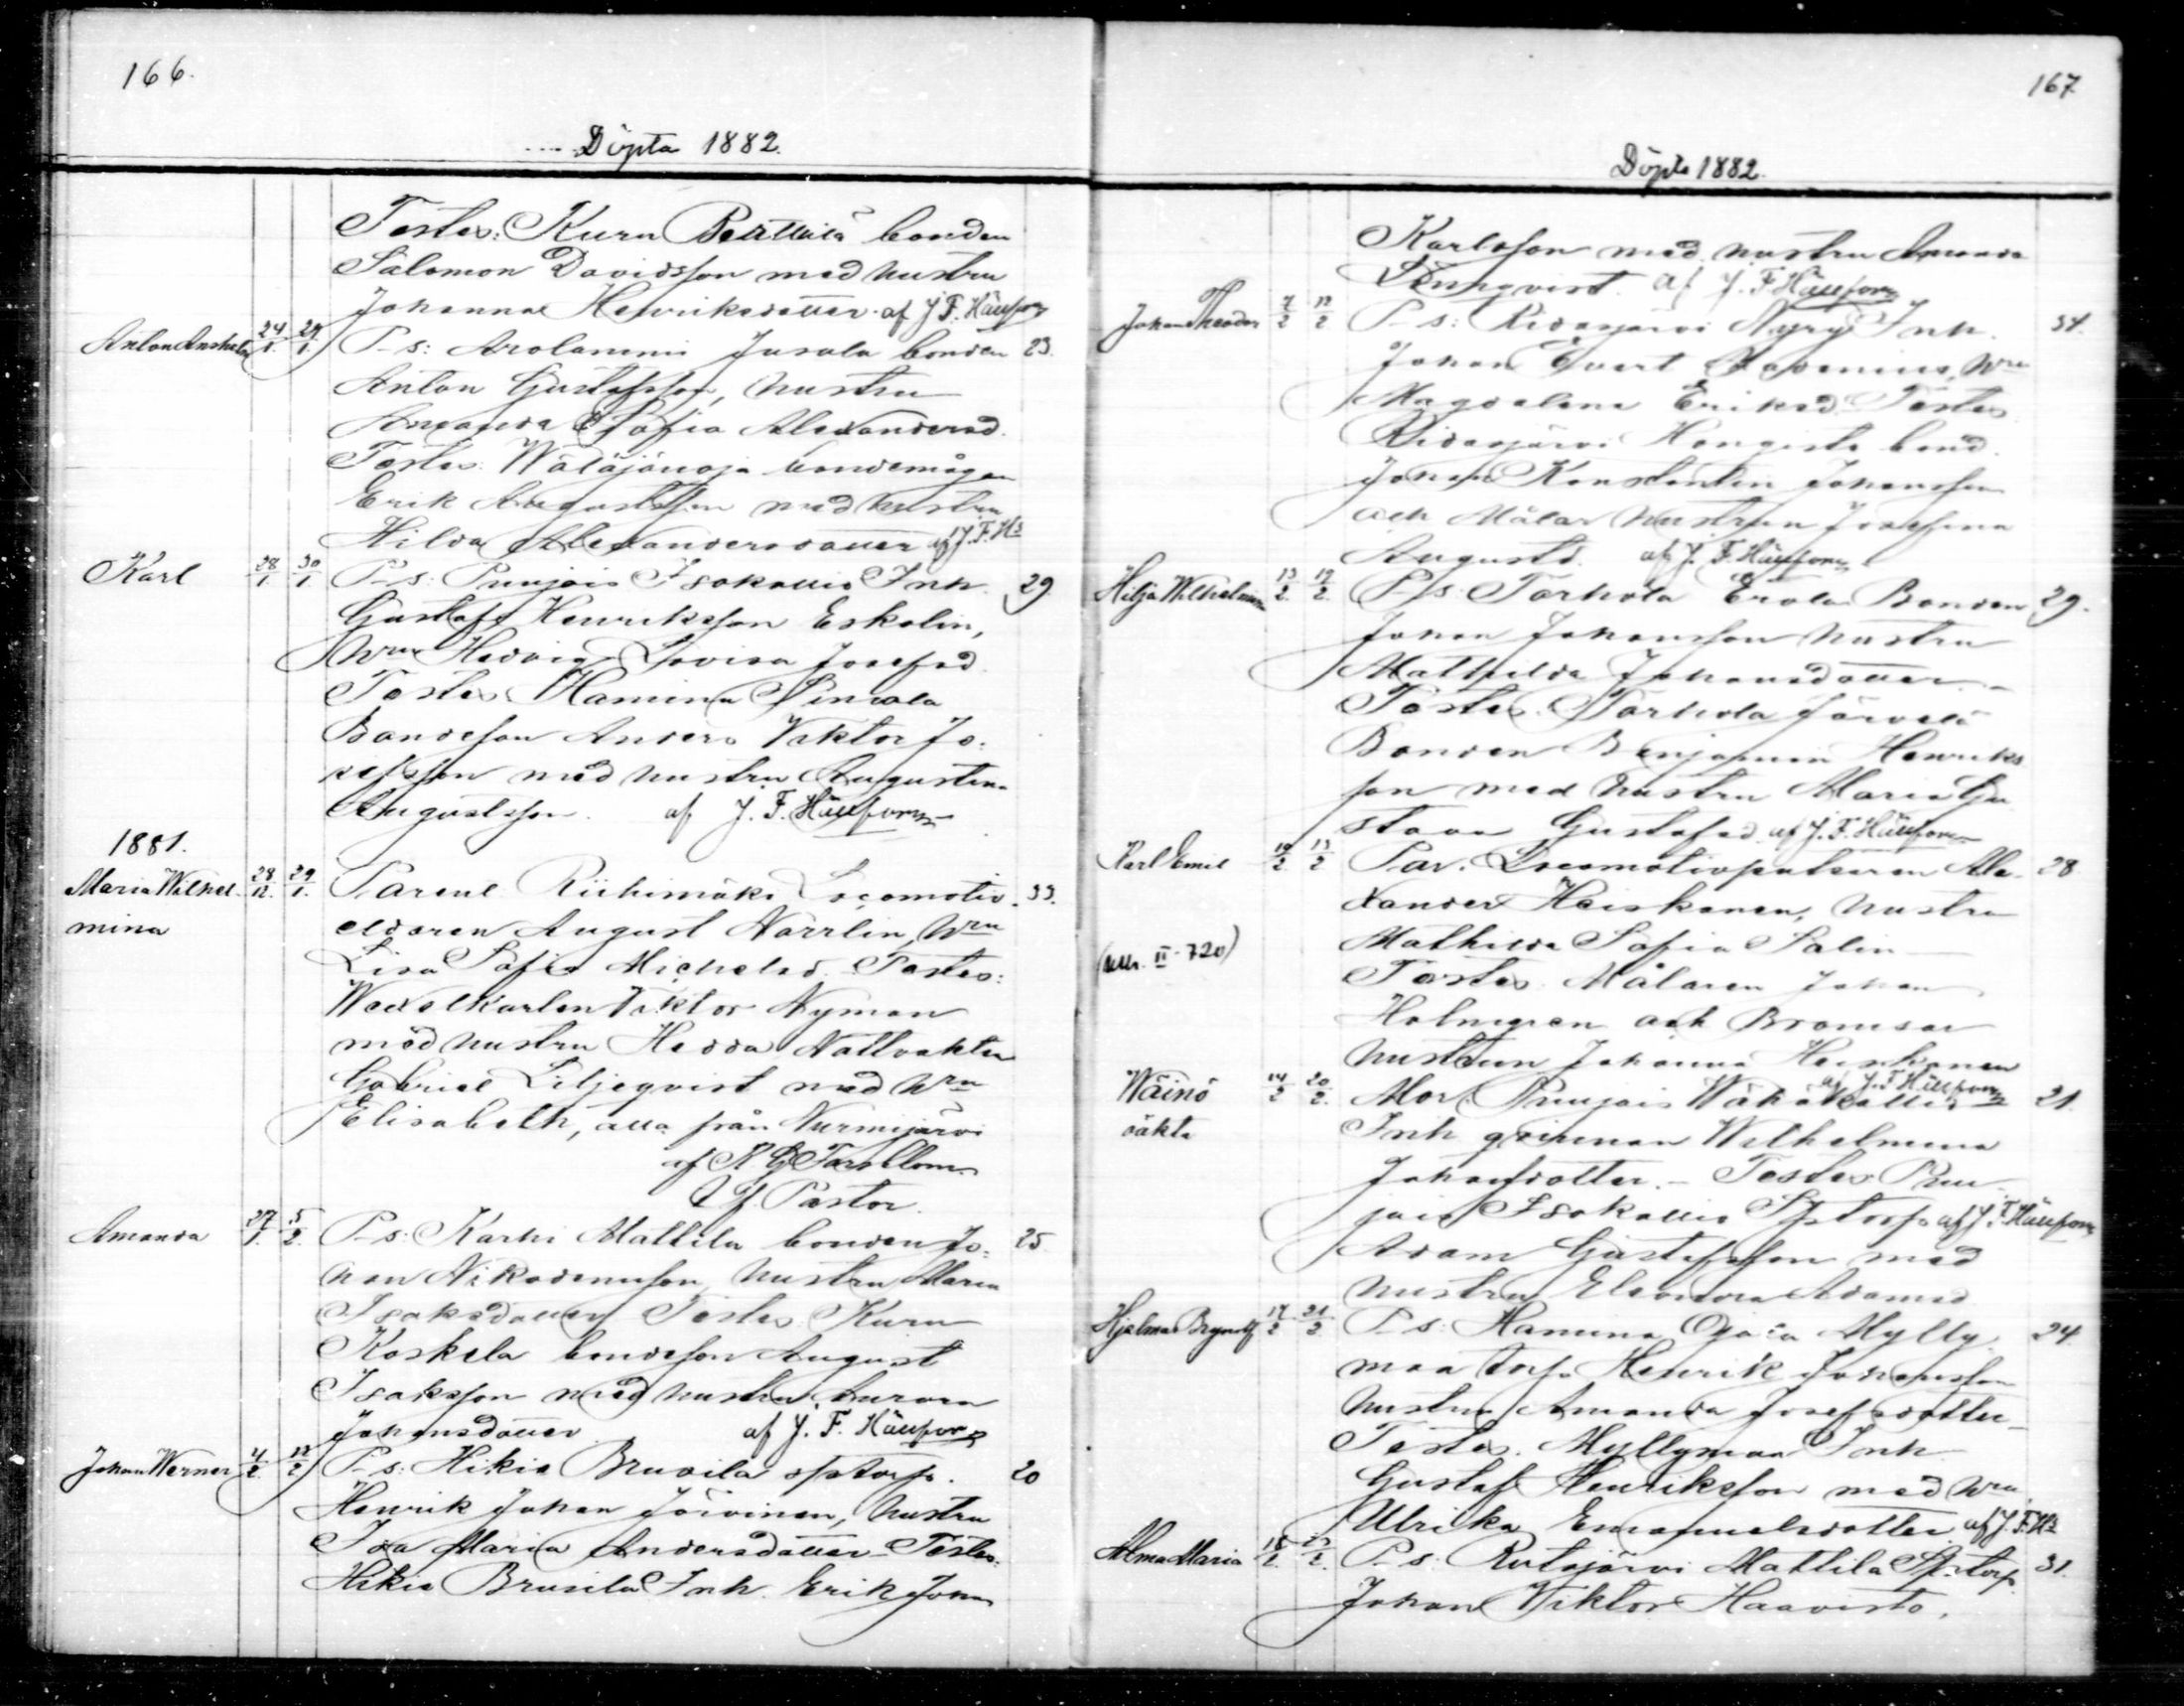 166.
Döpta 1882.
Testes: Kuru Penttilä bonden
Salomon Davidsson med hustru
Johanna Henriksdotter. af J. F. Hällfors
Anton Anshelm 24/1 29/1 P-s: Arolammi Jusola bonden 23.
Anton Gustafsson, hustru
Amanda Sofia Alexandersd.
Testes: bondemågen
Erik Augustsson med hustru
Hilda Alexandersdotter af J. F. Hs
Karl 28/1 30/1 P-s: Punjois Isokallio Inh. 29
Gustaf Henriksson Eskolin,
hru Hedvig Lovisa Josefsd.
Testes: Hamina
Bondeson Anders Viktor Jo-
sefsson med hustru Augustina
Augustsson. af J. F. Hällfors
1881.
Maria Wilhel- 28/12 29/1 Parent Riihimäki Locomotiv- 33.
mina eldaren August Norrlin, hru
Lisa Sofia Michelsd. Testes:
Wexelkarlen Viktor Nyman
med hustru Hedda Nattvakten
Gabriel Liljeqvist med hru
Elisabeth, alla från Nurmijärvi
af K. G. Forsblom
Pastor.
Amanda 27/1 5/2 P-s: Karhi Mattila bonden Jo- 25
han Nikodemusson, hustru Maria
Isaksdotter Testes: Kuru
Koskela bondeson August
Isaksson med hustru Aurora
Johansdotter af J. F. Hällfors
Johan Werner 4/2 12/2 P-s: Hikiä Bruvila sptorp. 20
Henrik Johan Järvinen, hustru
Ida Maria Andersdotter - Testes:
Hikiä Bruvila Inh. Erik Johan
167.
Döpta 1882.
Karlsson med hustru Amanda
Lönnqvist. af J. F. Hällfors
Johan Theodor 7/2 12/2 P-s: Ridasjärvi Nyry Inh. 34.
Johan Evert hru
Magdalena Eriksd. Testes
Ridasjärvi Hongisto bond.
Johan Konstantin Johansson
och Målar hustrun Josefina
Augustd. af J. F. Hällfors
Hilja Wilhelmina 13/2 19/2 P-s: Torhola Erola Bonden 29.
Johan Johansson hustru
Mathilda Johansdotter. -
Testes: Torhola Järvelä
Bonden Benjamin Henriks-
son med hustru Maria Gu-
stava Gustafsd. af J. F. Hällfors
Karl Emil 10/2 13/2 Par. Locomotivputsaren Ale- 28
xander Heiskanen, hustru
Mathilda Sofia Salin
Testes: Målaren Johan
Holmgren och Bromsar
hustrun Johanna Heiskanen
af J. F. Hällfors
Wäinö 14/2 20/2 Mor: Punjois Wähäkallio 21.
oäkta Inh qvinnan Wilhelmina
Johansdotter. - Testes Pun-
jois Isokallio Sptorp. af J. F. Hällfors
Adam Gustafsson med
hustru Eleonora Adamsd
Hjalmar Brynolf 17/2 21/2 P-s: Hamina Ojala Mylly- 24.
maa torp. Henrik Johansson
hustru Amanda Josefsdotter
Testes: Myllymaa Inh
Gustaf Henriksson med hru
Ulrika Emanuelsdotter af J. F. Hs
Alma Maria 18/2 P-s: Rutajärvi Mattila Sptorp 31.
Johan Viktor Haavisto,